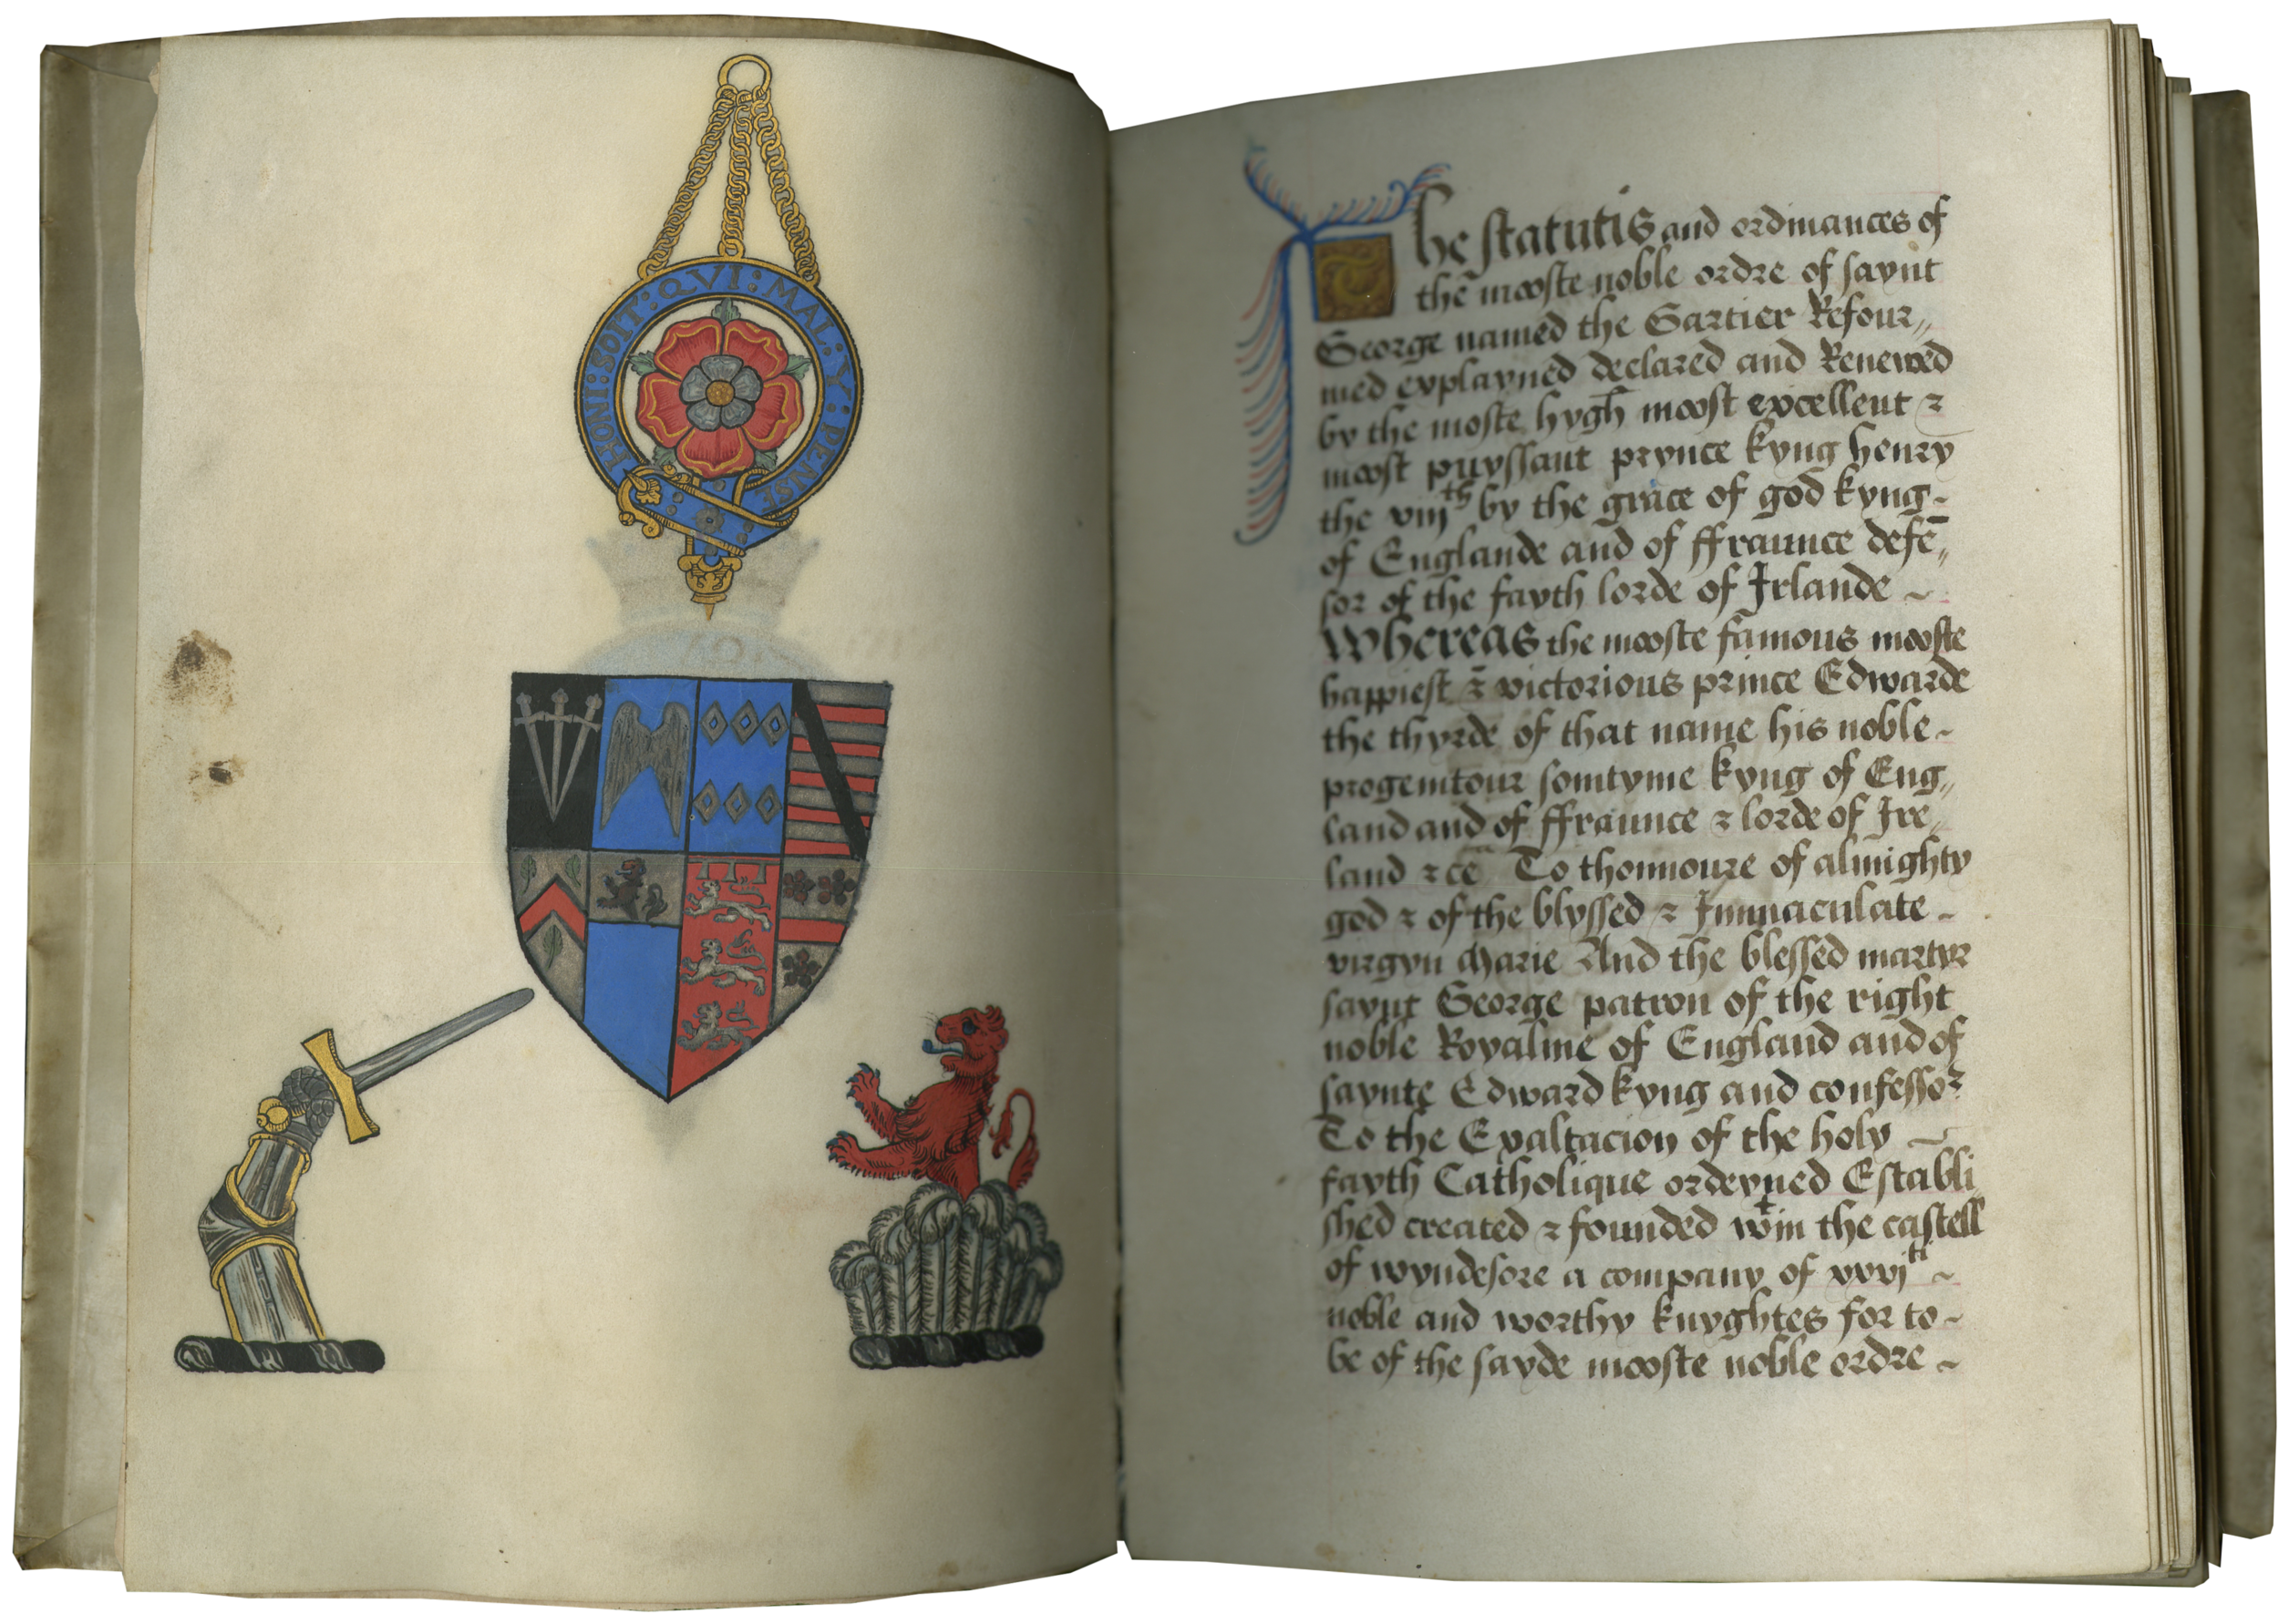 HONI : SOIT : QVI : MAL : Y : PENSE
The statutis and ordinances of
the mooste noble ordre of saynt
George named the Gartier Refour„
med explayned declared and Renewed
by the moste hygh moost excellent ⁊
moost puyssant prynce kyng henry
the viijth by the grace of god kyng ~
of Englande and of ffraunce defē„
sor of the fayth lorde of Irlande ~
Whereas the mooste famous mooste
happiest ⁊ victorious prince Edwarde
the thyrde of that name his noble ~
progenitour somtyme kyng of Eng„
land and of ffraunce ⁊ lorde of Ire„
land ⁊ cē To thonnoure of almighty
god ⁊ of the blyssed ⁊ Immaculate ~
virgyn Marie And the blessed martyr
saynt George patron of the right
noble Royalme of England and of
saynte Edward kyng and confessor
To the Exaltacion of the holy ~
fayth Catholique ordeyned Establi
shed created ⁊ founded wtin the castell
of wyndesore a company of xxvjti ~
noble and worthy knyghtes for to ~
be of the sayde mooste noble ordre ~